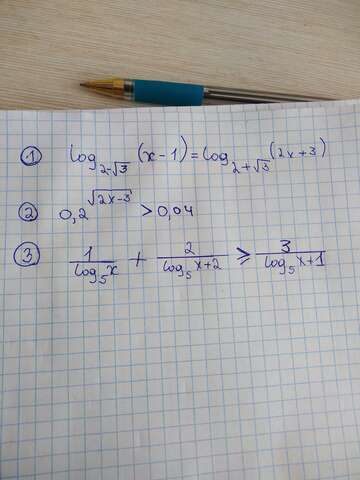 ① log_{2-√3} (x-1) = log_{2+√3} (2x+3)
② 0,2^{√(2x-3)} > 0,04
③ 1/(log₅x) + 2/(log₅x+2) ≥ 3/(log₅x+1)